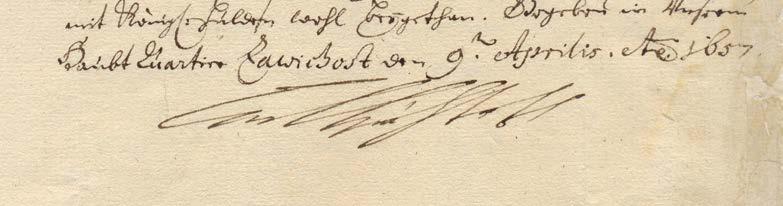 mit Königl. hulden wohl beygethan. Gegeben in Unserm
Haubt Quartier Zawichost den 9.ᵗ Aprilis. Aõ. 1657.